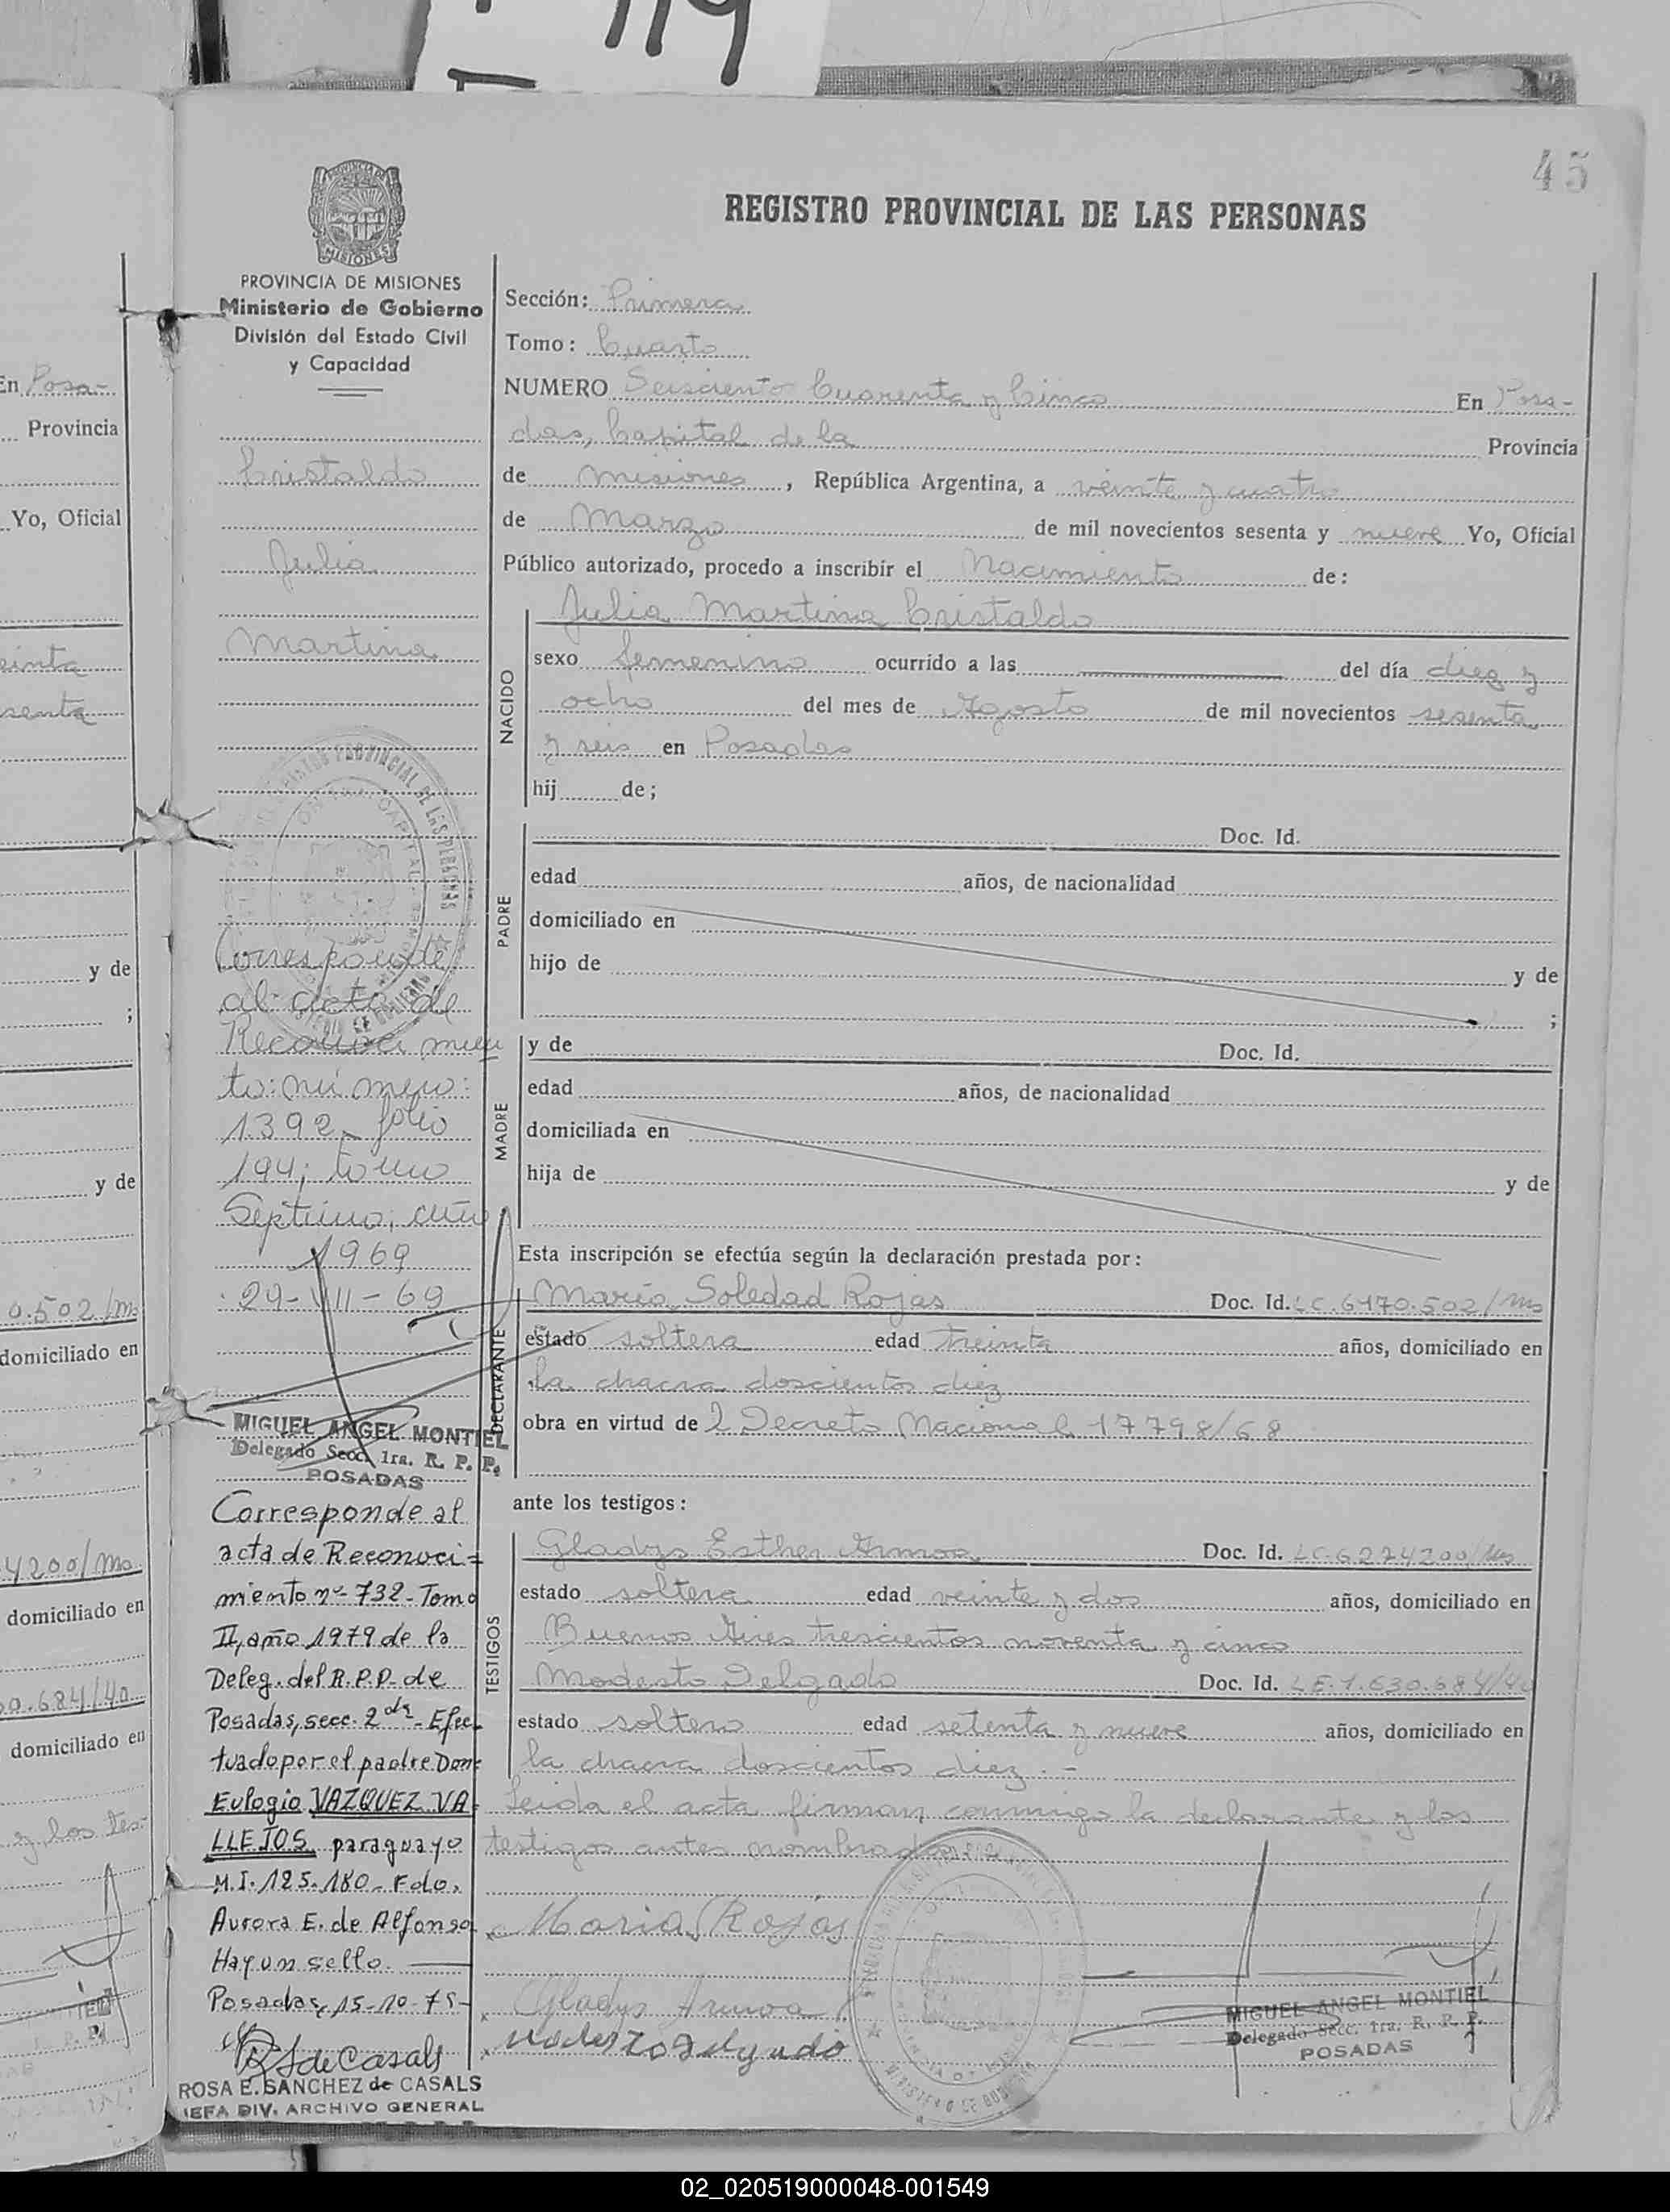 45
REGISTRO PROVINCIAL DE LAS PERSONAS
PROVINCIA DE MISIONES
Ministerio de Gobierno
División del Estado Civil
y Capacidad
Cristaldo
Julia
Martina
Corresponde
al acta de
Reconoci mien
to: número:
1392 folio
194; tomo
Septimo; año
1969
29-VII-69
MIGUEL ANGEL MONTIEL
Delegado Secc. 1ra. R. P. P.
POSADAS
Corresponde al
acta de Reconoci=
miento nº 732 - Tomo
II, año 1979 de la
Deleg. del R.P.P. de
Posadas, secc. 2da - Efec
tuado por el padre Don=
Eulogio VAZQUEZ VA=
LLEJOS paraguayo
M.I. 125.180 - Fdo.
Aurora E. de Alfonso
Hay un sello.
Posadas, 15-10-75-
RS de Casals
ROSA E. SANCHEZ de CASALS
JEFA DIV. ARCHIVO GENERAL
Sección: Primera
Tomo: Cuarto
NUMERO Seisciento Cuarenta y Cinco En Posa-
das, Capital de la Provincia
de Misiones, República Argentina, a veinte y cuatro
de Marzo de mil novecientos sesenta y nueve Yo, Oficial
Público autorizado, procedo a inscribir el Nacimiento de:
NACIDO
Julia Martina Cristaldo
sexo femenino ocurrido a las del día diez y
ocho del mes de Agosto de mil novecientos sesenta
y seis en Posadas
hij de;
PADRE
Doc. Id.
edad años, de nacionalidad
domiciliado en
hijo de y de
;
MADRE
y de Doc. Id.
edad años, de nacionalidad
domiciliada en
hija de y de
Esta inscripción se efectúa según la declaración prestada por:
DECLARANTE
María Soledad Rojas Doc. Id. LC.6470.502/Ms
estado soltera edad treinta años, domiciliado en
la chacra doscientos diez
obra en virtud de Decreto Nacional 17798/68
ante los testigos:
TESTIGOS
Gladys Esther Armoa Doc. Id. LC.6274200/Ms
estado soltera edad veinte y dos años, domiciliado en
Buenos Aires trescientos noventa y cinco
Modesto Delgado Doc. Id. LE.1.630.684/40
estado soltero edad setenta y nueve años, domiciliado en
la chacra doscientos diez. -
Leida el acta firman conmigo la declarante y los
testigos antes nombrados
Maria Rojas
Gladys Armoa
Modesto Delgado
MIGUEL ANGEL MONTIEL
Delegado Secc. 1ra. R. P. P.
POSADAS
En Posa-
Provincia
Yo, Oficial
einta
senta
y de
;
y de
0.502/Ms
domiciliado en
4200/Ms
domiciliado en
0.684/40
domiciliado en
y los tes-
02_020519000048-001549